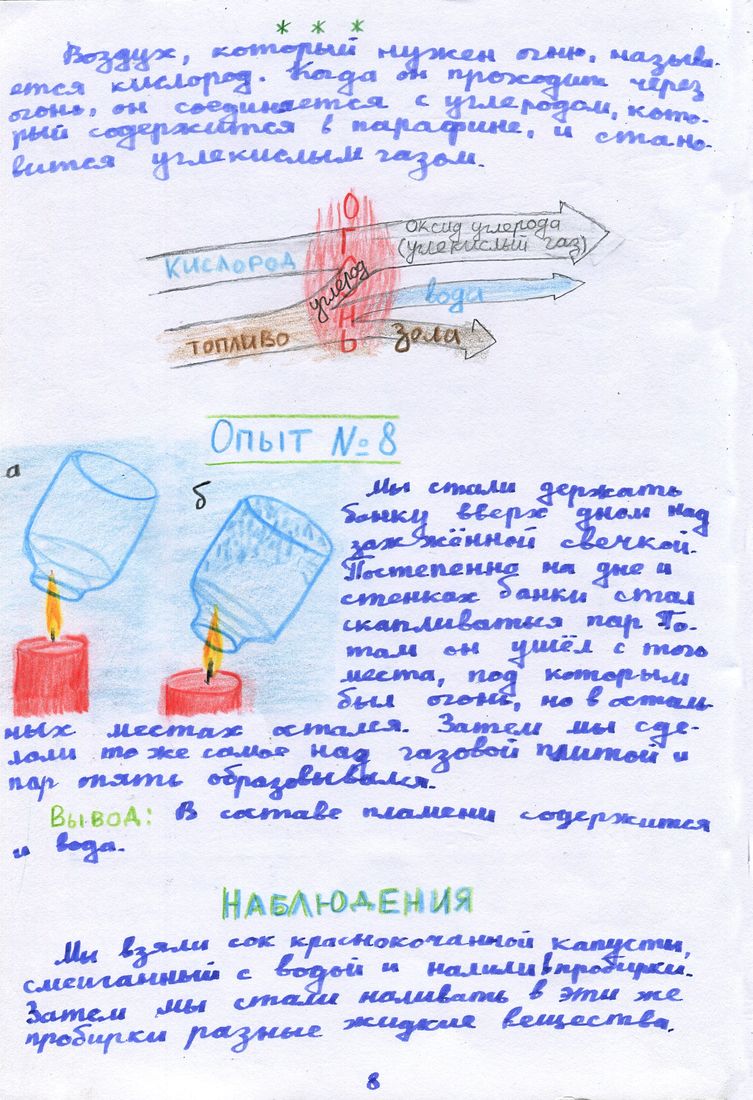 * * *
Воздух, который нужен огню, называ-
ется кислород. Когда он проходит через
огонь, он соединяется с углеродом, кото-
рый содержится в парафине, и стано-
вится углекислым газом.
ОГОНЬ
КИСЛОРОД
углерод
оксид углерода
(углекислый газ)
вода
ТОПЛИВО
зола
Опыт №8
а
б
Мы стали держать
банку вверх дном над
зажжённой свечкой.
Постепенно на дне и
стенках банки стал
скапливаться пар По-
том он ушёл с того
места, под которым
был огонь, но в осталь-
ных местах остался. Затем мы сде-
лали то же самое над газовой плитой и
пар опять образовывался.
Вывод: В составе пламени содержится
и вода.
НАБЛЮДЕНИЯ
Мы взяли сок краснокочанной капусты,
смешанный с водой и налили в пробирки.
Затем мы стали наливать в эти же
пробирки разные жидкие вещества.
8